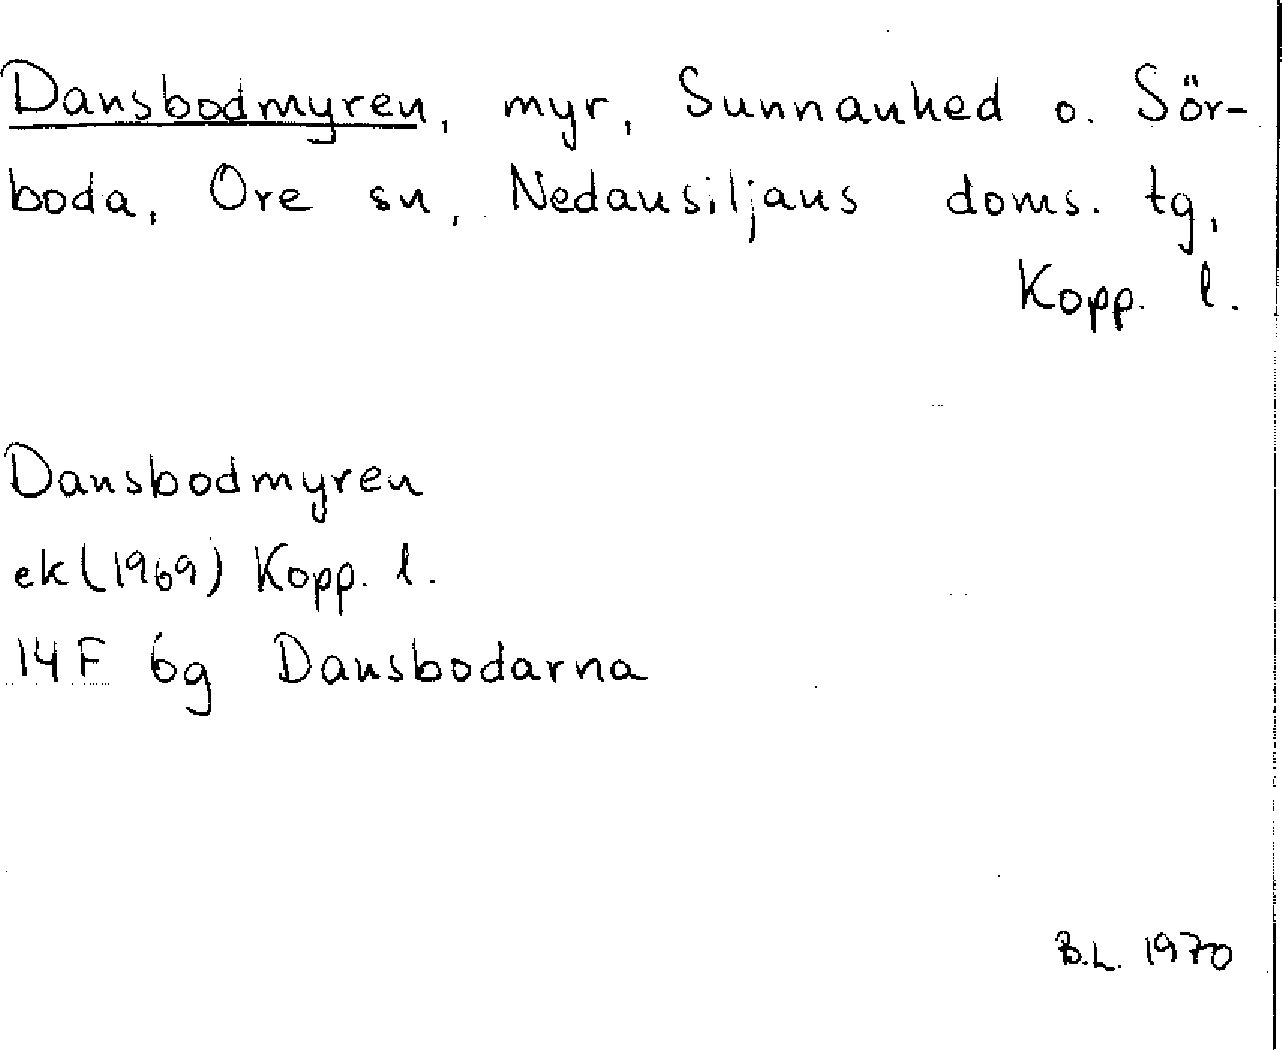 Dansbodmyren, myr, Sunnanhed o. Sör-
boda, Ore sn, Nedansiljans doms. tg,
Kopp. l.
Dansbodmyren
ek (1969) Kopp. l.
14F 6g Dansbodarna
B.L. 1970